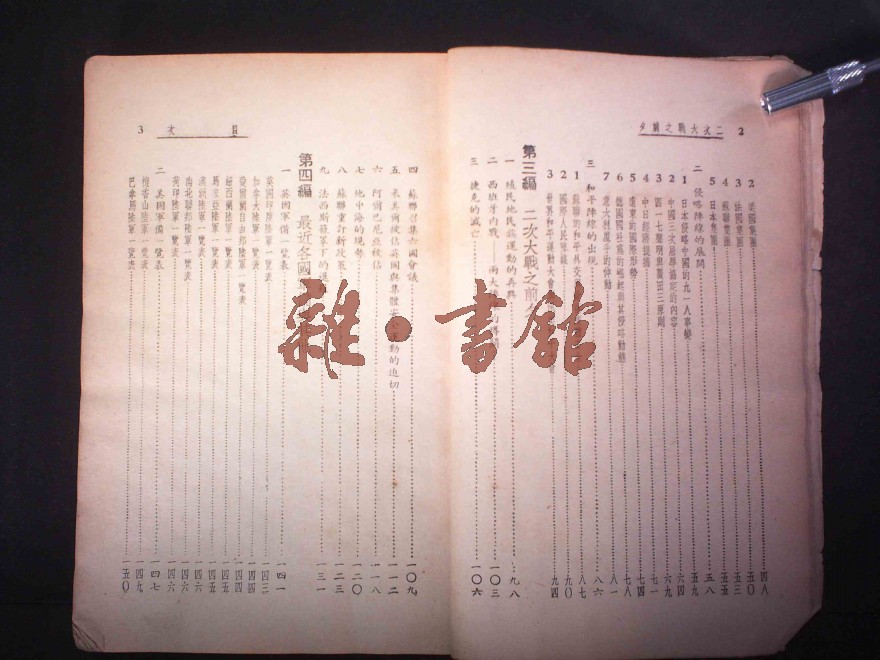 二次大戰之前夕 2
2 英國集團 四八
3 法國集團 五〇
4 蘇聯集團 五三
5 日本集團 五五
二 侵略陣線的展開 五八
1 日本侵略中國的九一八事變 五九
2 中國三次反帝鬥爭的內容 六四
3 四一七聲明與廣田三原則 六九
4 中日經濟提攜 七一
5 遠東的國際形勢 七四
6 德國國社黨的崛起與其侵略動態 七八
7 意大利棒喝主的動 八一
三 和平陣線的出現 八六
1 蘇聯的和平外交 八七
2 國際人民陣線 九〇
3 世界和平運動大會 九四
第三編 二次大戰之前夕
一 殖民地民族運動的再興 九八
二 西班牙內戰 一〇三
三 捷克的滅亡 一〇六
目次 3
四 蘇聯召集六國會議 一〇九
五 米美爾被佔英國與集體安全運動的迫切 一一二
六 阿爾巴尼亞被佔 一一八
七 地中海的現勢 一二〇
八 蘇聯重訂新政策 一二三
九 法西斯鐵軍下的 一三一
第四編 最近各國
一 英國軍備一覽表 一四一
英國印度陸軍一覽表 一四二
加拿大陸軍一覽表 一四四
愛爾蘭自由邦陸軍一覽表 一四四
紐西蘭陸軍一覽表 一四五
馬來亞陸軍一覽表 一四五
澳洲陸軍一覽表 一四六
南非聯邦陸軍一覽表 一四六
英印陸軍一覽表 一四六
二 美國軍備一覽表 一四七
檀香山陸軍一覽表 一四九
巴拿馬陸軍一覽表 一五〇
雜·書館